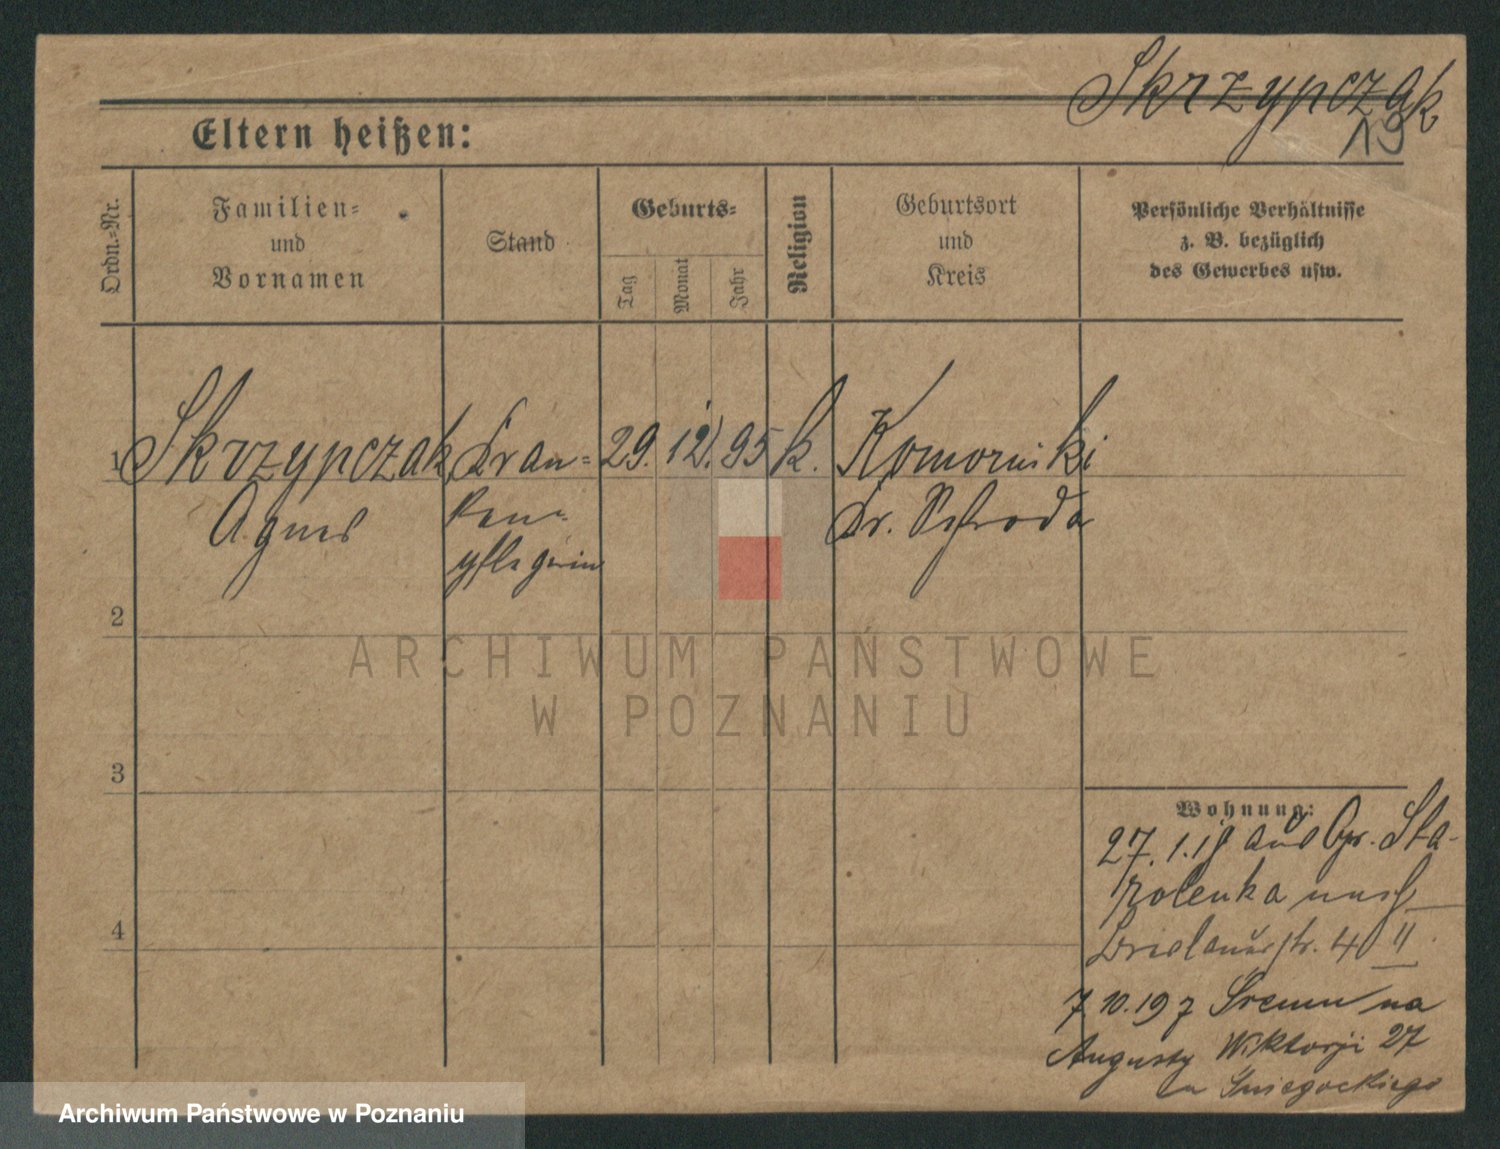 Skrzypczak
19
Eltern heißen:
Ordn.=Nr.
Familien=
und
Vornamen
Stand
Geburts=
Tag
Monat
Jahr
Religion
Geburtsort
und
Kreis
Persönliche Verhältnisse
z. B. bezüglich
des Gewerbes usw.
1 Skrzypczak Kran= 29. 12. 95 k. Komorniki
Agnes ken= Kr. Schroda
pflegerin
2
3
4
Wohnung:
27. 1. 19 aus Gr. Sta-
rolenka nach
Breslauerstr. 40 II
7.10.19 z Śremu na
Augusty Wiktorji 27
u Śniegockiego
ARCHIWUM PAŃSTWOWE
W POZNANIU
Archiwum Państwowe w Poznaniu